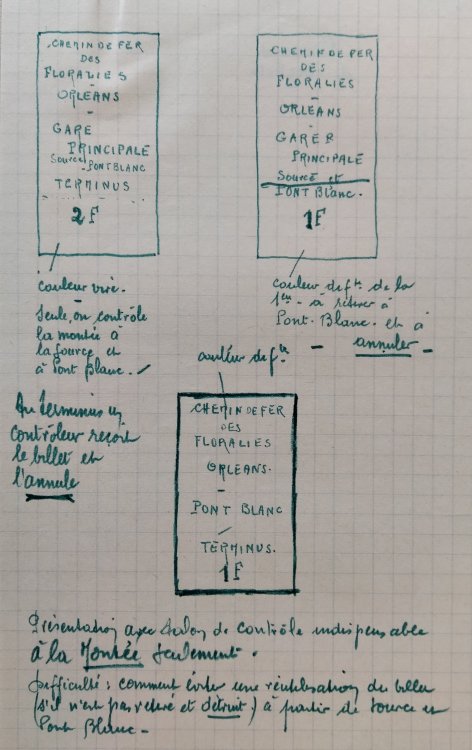 CHEMIN DE FER
DES
FLORALIES
-
ORLEANS
-
GARE
PRINCIPALE
Source
- PONT BLANC
TERMINUS
2F
couleur vive.
-
Seule, on contrôle
la montée à
la Source et
à Pont Blanc.
CHEMIN DE FER
DES
FLORALIES
-
ORLEANS
-
GARE
PRINCIPALE
Source et
PONT Blanc.
1F
couleur diffte de la
1ère à retirer à
Pont-Blanc. et à
- annuler -
couleur diffte
CHEMIN DE FER
DES
FLORALIES
ORLEANS.
-
PONT BLANC
-
TERMINUS.
1F
Au Terminus un
contrôleur reçoit
le billet et
l'annule
Présentation avec talon de contrôle indispensable
à la Montée seulement.
Difficulté : comment éviter une réutilisation du billet
(s'il n'est pas retiré et détruit) à partir de Source et
Pont Blanc -